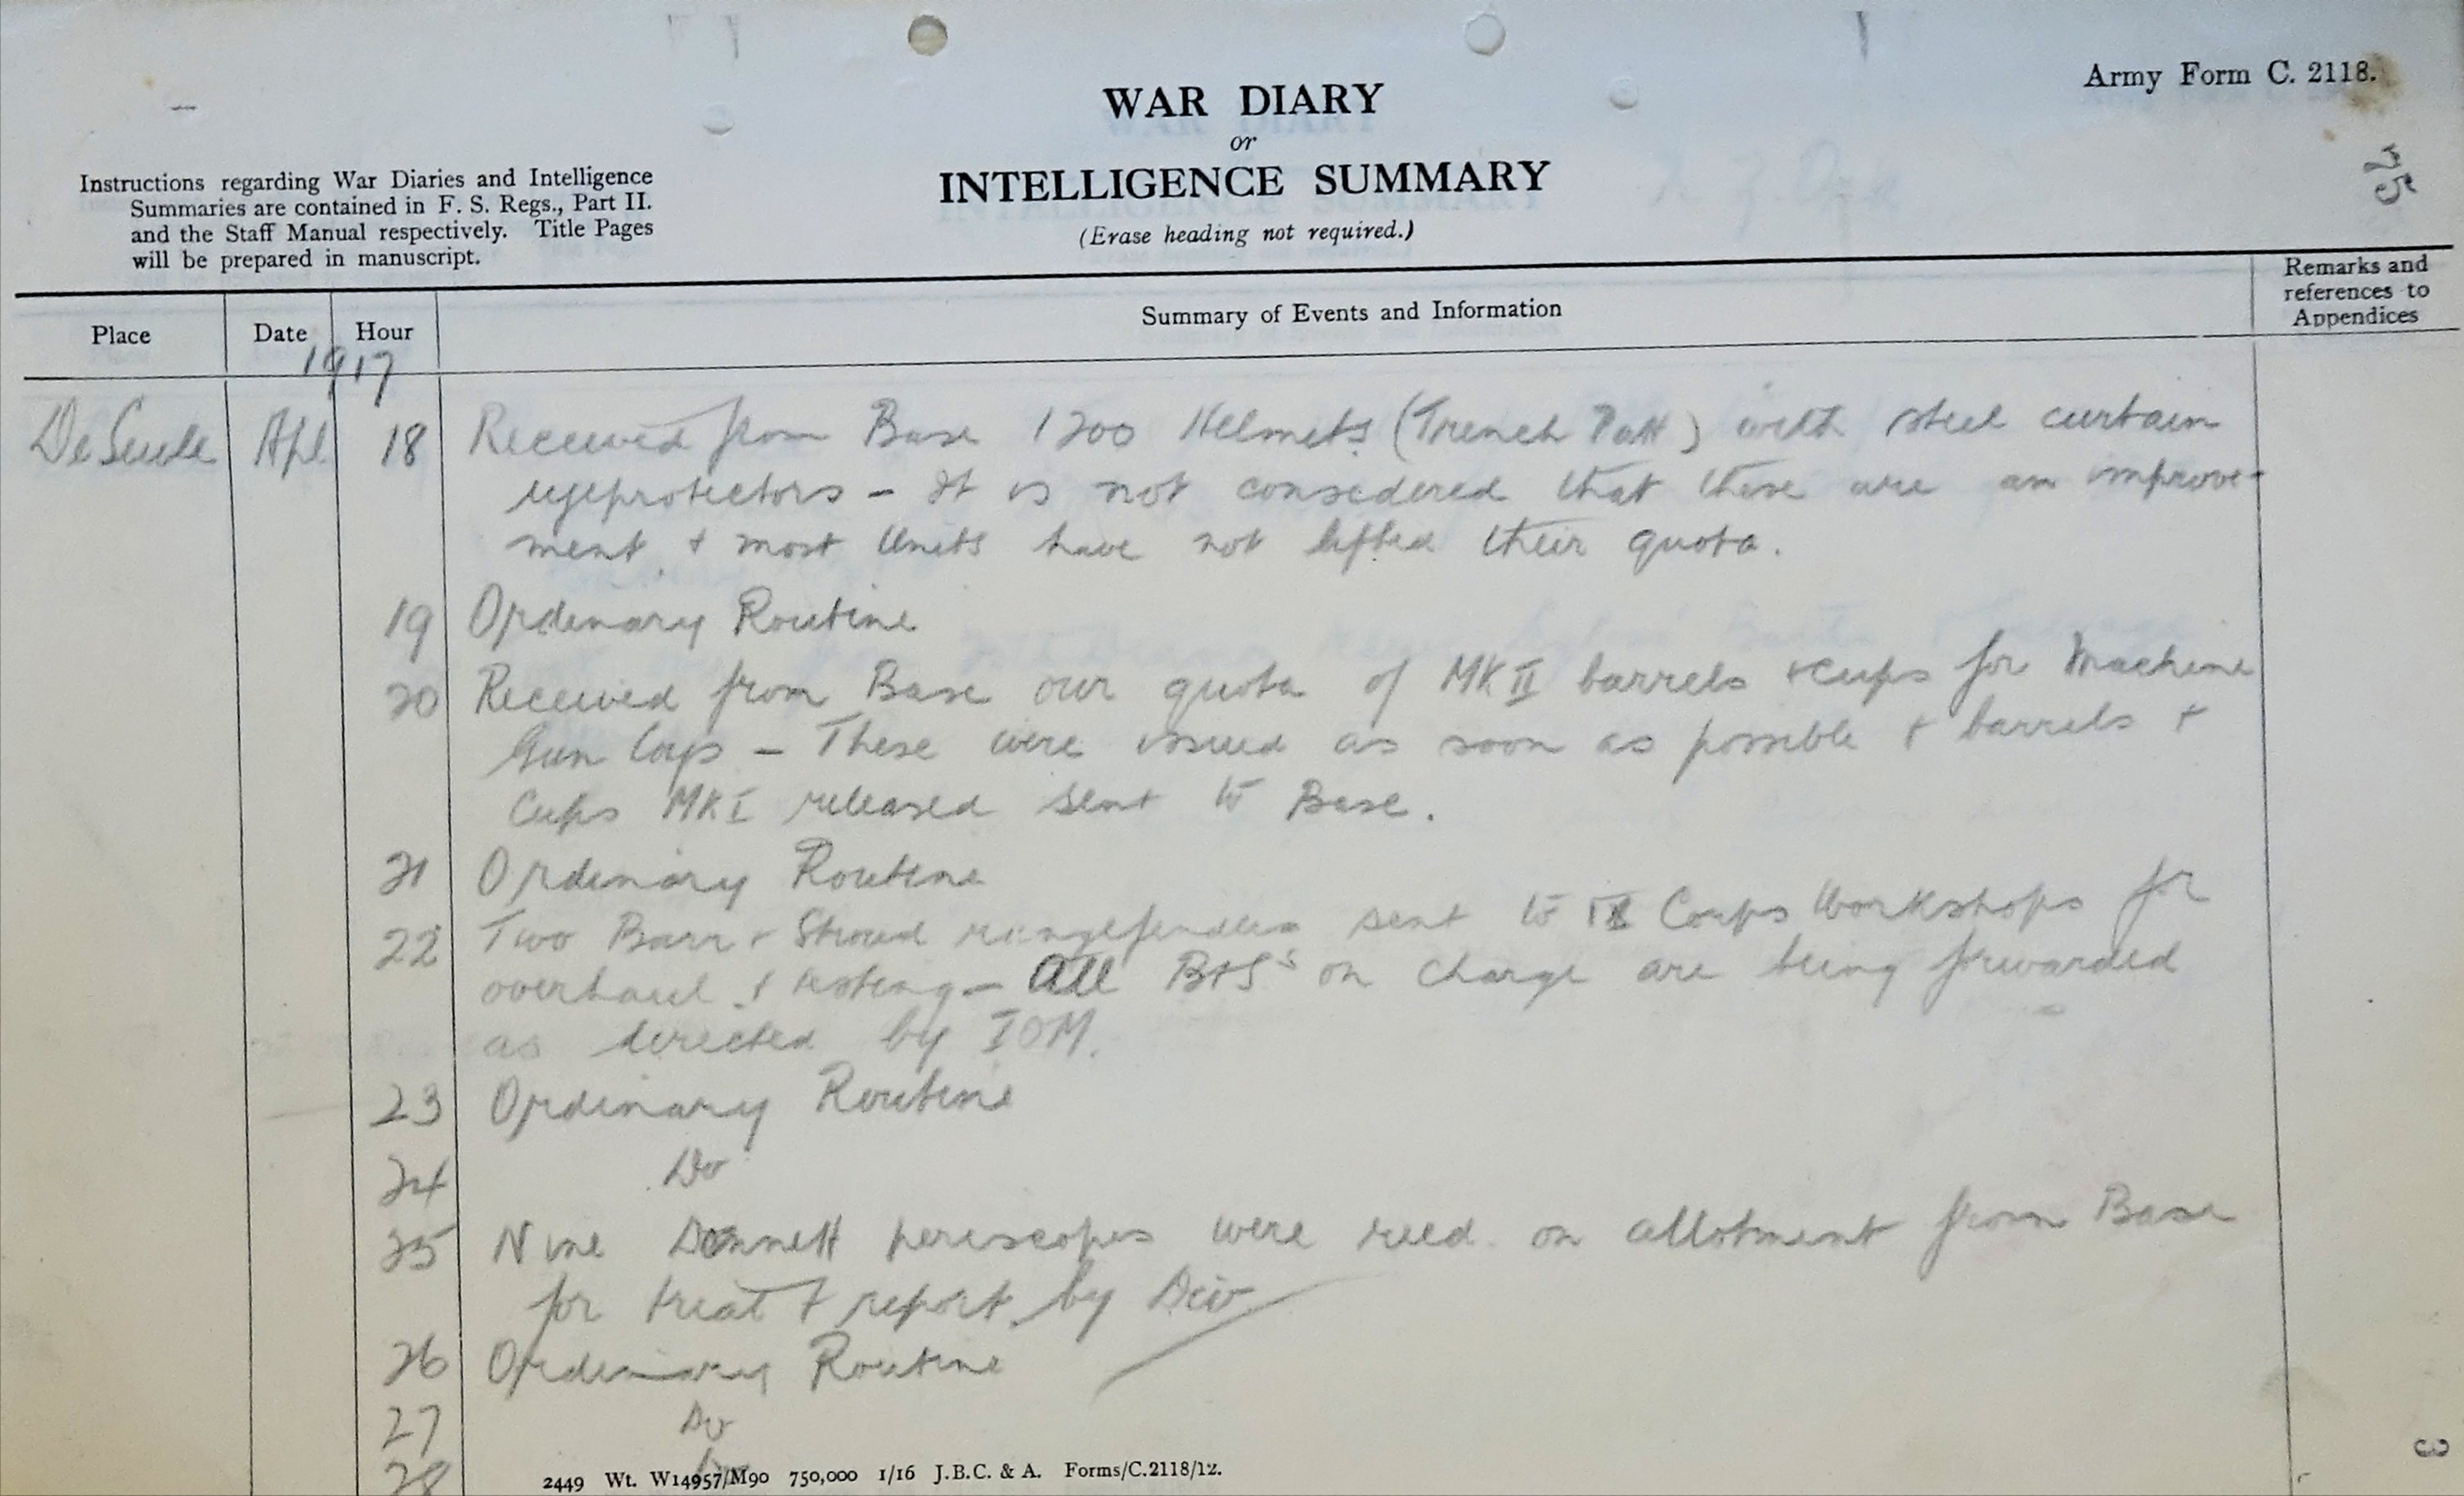 Army Form C. 2118.
WAR DIARY
or
INTELLIGENCE SUMMARY
(Erase heading not required.)
Instructions regarding War Diaries and Intelligence
Summaries are contained in F. S. Regs., Part II.
and the Staff Manual respectively. Title Pages
will be prepared in manuscript.
75
Place Date Hour Summary of Events and Information
Remarks and
references to
Appendices
1917
De Seule Apl 18 Received from Base 1200 Helmets (Trench Patt) with steel curtain
eyeprotectors - It is not considered that these are an improve-
ment & most Units have not lifted their quota.
19 Ordinary Routine
20 Received from Base our quota of MK II barrels & cups for Machine
Gun Coys - These were issued as soon as possible & barrels &
Cups MK I released sent to Base.
21 Ordinary Routine
22 Two Barr & Stroud rangefinders sent to Corps Workshops for
overhaul & testing - All B&Ss on charge are being forwarded
as directed by IOM.
23 Ordinary Routine
24 Do
25 Nine periscopes were recd. on allotment from Base
for & report by Div
26 Ordinary Routine
27 Do
28
2449 Wt. W14957/M90 750,000 1/16 J.B.C. & A. Forms/C.2118/12.
3